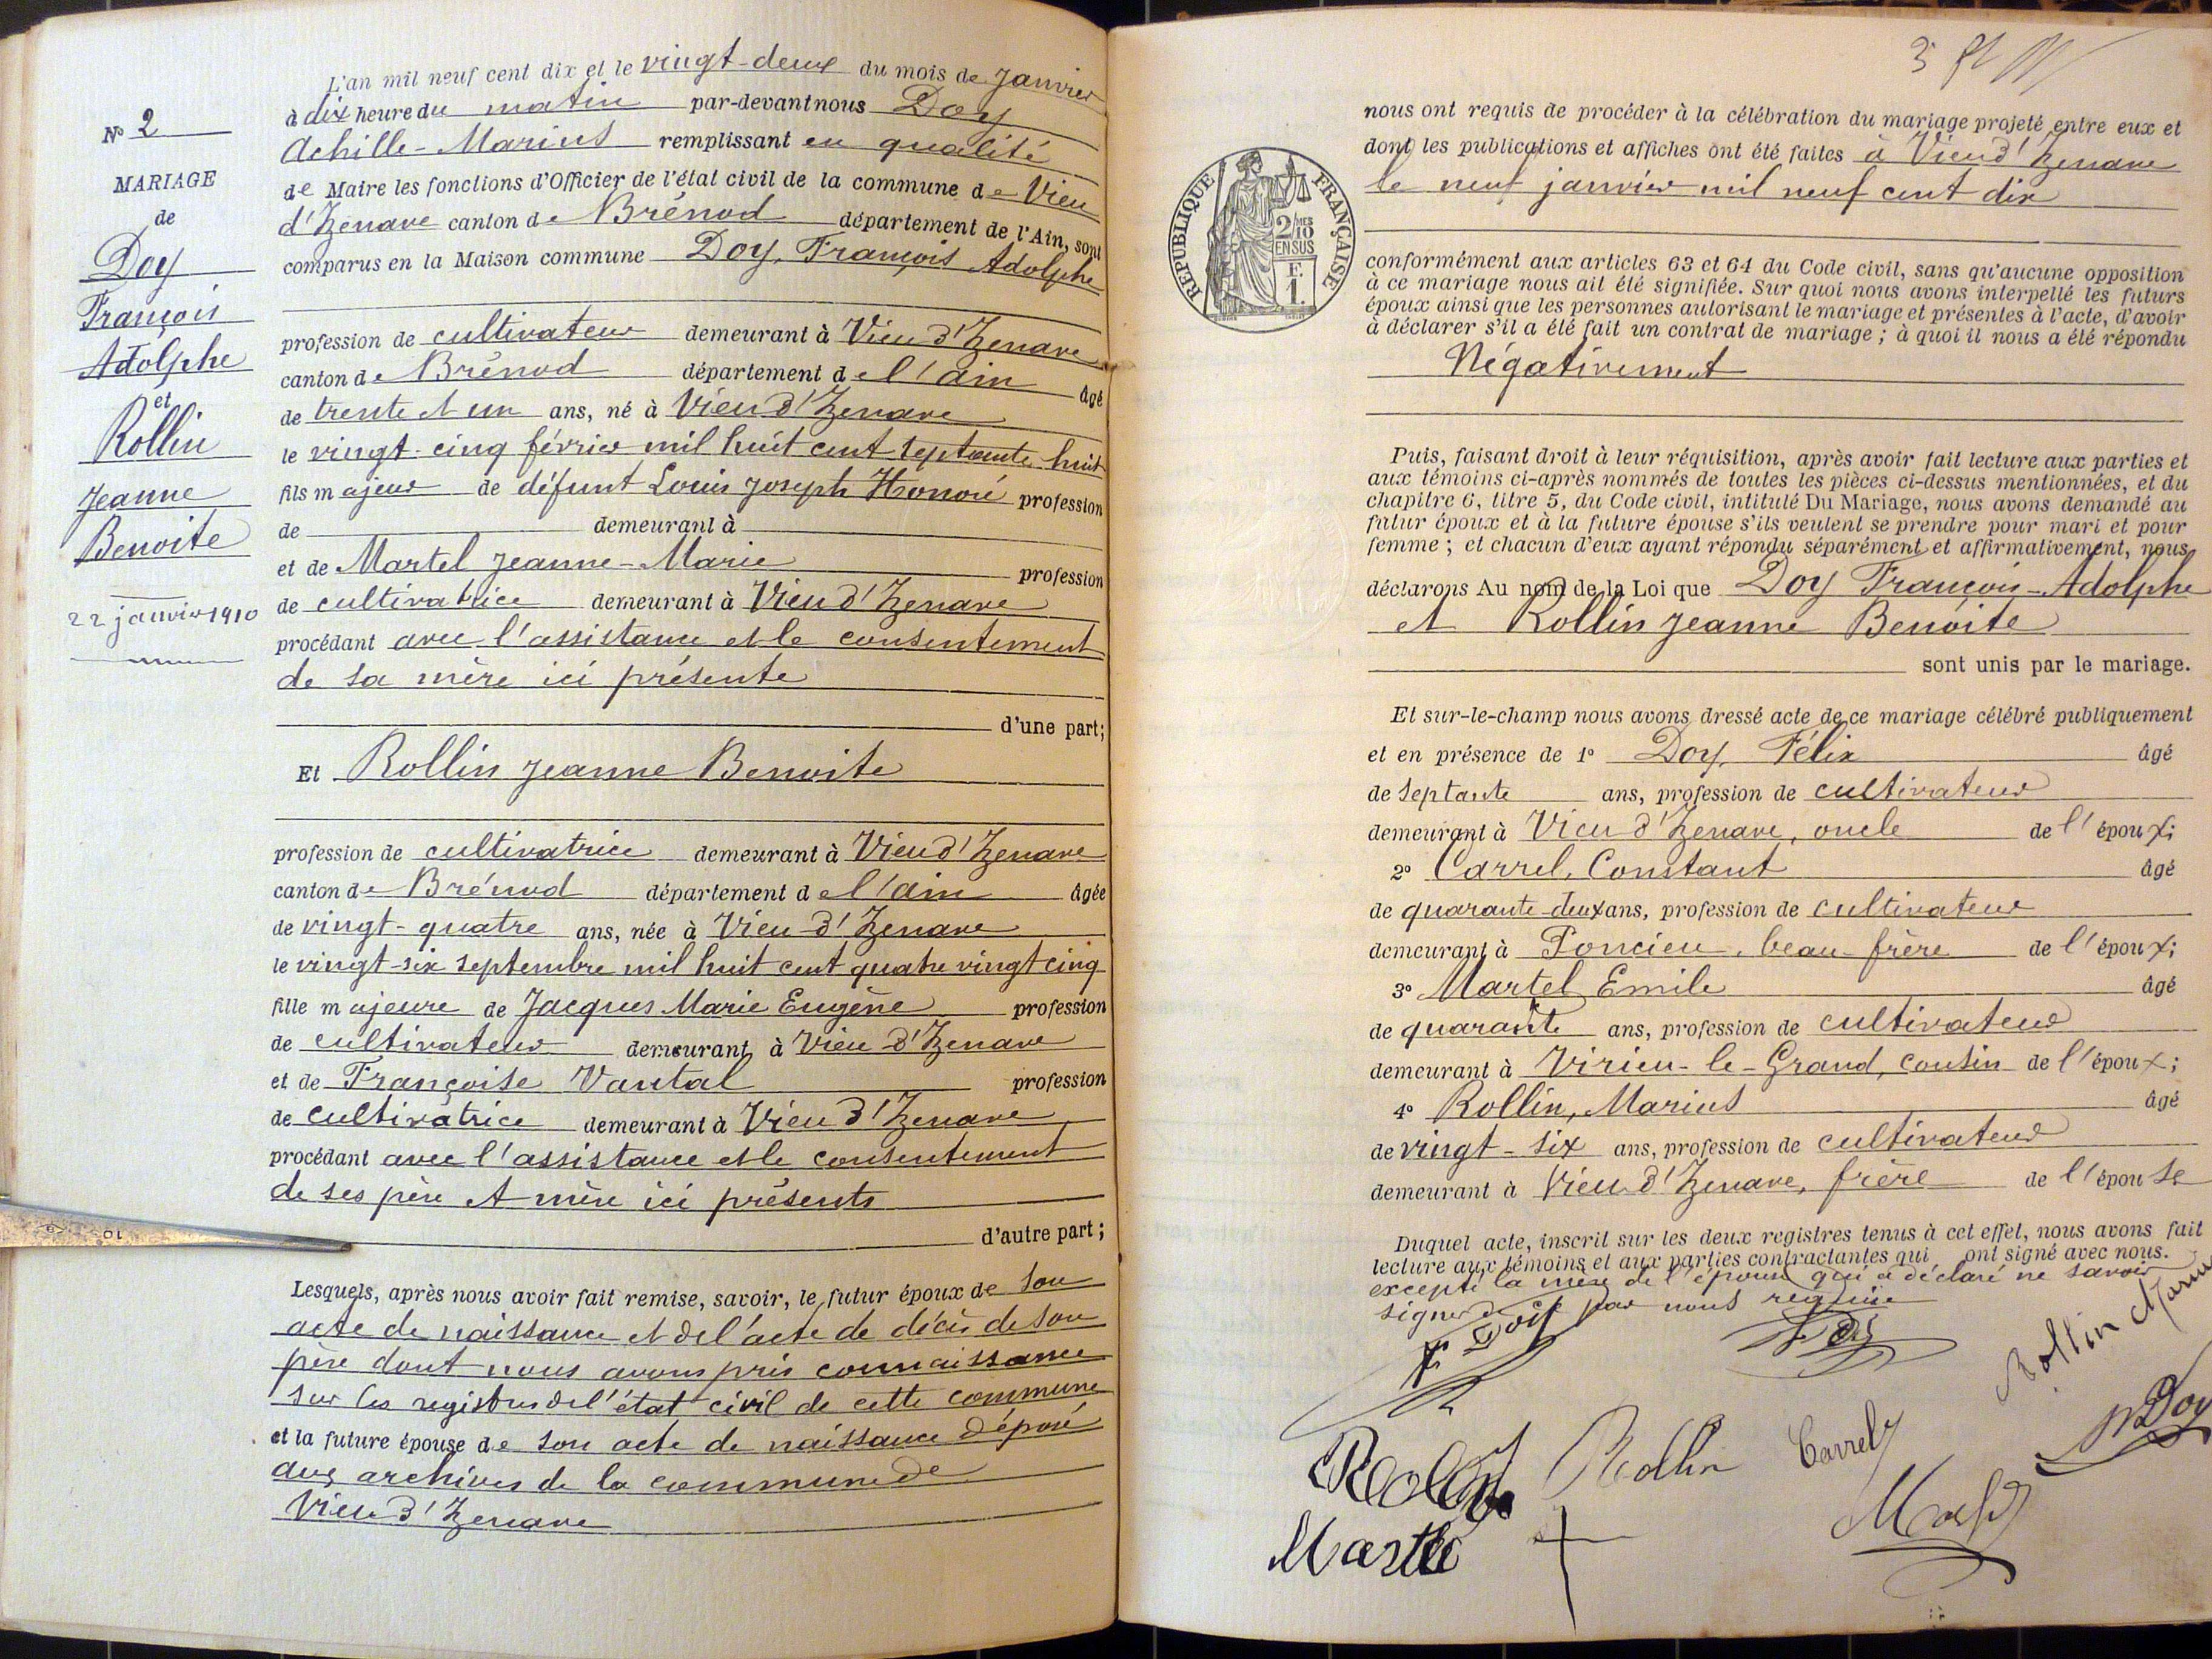 N° 2
MARIAGE
de
Doy
François
Adolphe
et
Rollin
Jeanne
Benoite
22 janvier 1910
L'an mil neuf cent dix et le vingt-deux du mois de Janvier
à dix heure du matin par-devant nous Doy
Achille-Marius remplissant en qualité
de Maire les fonctions d'Officier de l'état civil de la commune de Vieu
d'Izenave canton de Brénod département de l'Ain, sont
comparus en la Maison commune Doy, François Adolphe
profession de cultivateur demeurant à Vieu d'Izenave
canton de Brénod département de l'Ain âgé
de trente et un ans, né à Vieu d'Izenave
le vingt-cinq février mil huit cent septante huit
fils majeur de défunt Louis Joseph Honoré profession
de demeurant à
et de Martel Jeanne-Marie profession
de cultivatrice demeurant à Vieu d'Izenave
procédant avec l'assistance et le consentement
de sa mère ici présente
d'une part;
Et Rollin Jeanne Benoite
profession de cultivatrice demeurant à Vieu d'Izenave
canton de Brénod département de l'Ain âgée
de vingt-quatre ans, née à Vieu-d'Izenave
le vingt-six septembre mil huit cent quatre vingt cinq
fille majeure de Jacques Marie Eugène profession
de cultivateur demeurant à Vieu-d'Izenave
et de Françoise Vantal profession
de cultivatrice demeurant à Vieu d'Izenave
procédant avec l'assistance et le consentement
de ses père et mère ici présents
d'autre part;
Lesquels, après nous avoir fait remise, savoir, le futur époux de son
acte de naissance et de l'acte de décès de son
père dont nous avons pris connaissance
sur les registres de l'état civil de cette commune
et la future épouse de son acte de naissance déposé
aux archives de la commune de
Vieu d'Izenave
3
nous ont requis de procéder à la célébration du mariage projeté entre eux et
dont les publications et affiches ont été faites à Vieu d'Izenave
le neuf janvier mil neuf cent dix
RÉPUBLIQUE FRANÇAISE
2/10 MES
EN SUS
F.
1.
conformément aux articles 63 et 64 du Code civil, sans qu'aucune opposition
à ce mariage nous ait été signifiée. Sur quoi nous avons interpellé les futurs
époux ainsi que les personnes autorisant le mariage et présentes à l'acte, d'avoir
à déclarer s'il a été fait un contrat de mariage; à quoi il nous a été répondu
Négativement
Puis, faisant droit à leur réquisition, après avoir fait lecture aux parties et
aux témoins ci-après nommés de toutes les pièces ci-dessus mentionnées, et du
chapitre 6, titre 5, du Code civil, intitulé Du Mariage, nous avons demandé au
futur époux et à la future épouse s'ils veulent se prendre pour mari et pour
femme; et chacun d'eux ayant répondu séparément et affirmativement, nous
déclarons Au nom de la Loi que Doy François-Adolphe
et Rollin Jeanne Benoite
sont unis par le mariage.
Et sur-le-champ nous avons dressé acte de ce mariage célébré publiquement
et en présence de 1° Doy, Félix âgé
de septante ans, profession de cultivateur
demeurant à Vieu-d'Izenave, oncle de l'époux;
2° Carrel, Constant âgé
de quarante-deux ans, profession de cultivateur
demeurant à Poncieu, beau-frère de l'époux;
3° Martel Emile âgé
de quarante ans, profession de cultivateur
demeurant à Virieu-le-Grand, cousin de l'époux;
4° Rollin, Marius âgé
de vingt-six ans, profession de cultivateur
demeurant à Vieu-d'Izenave, frère de l'épouse
Duquel acte, inscrit sur les deux registres tenus à cet effet, nous avons fait
lecture aux témoins et aux parties contractantes qui ont signé avec nous.
excepté la mère de l'époux qui a déclaré ne savoir
signer de ce par nous requise
F Doy
Rollin Marius
Rollin
Carrel
Doy
Martel